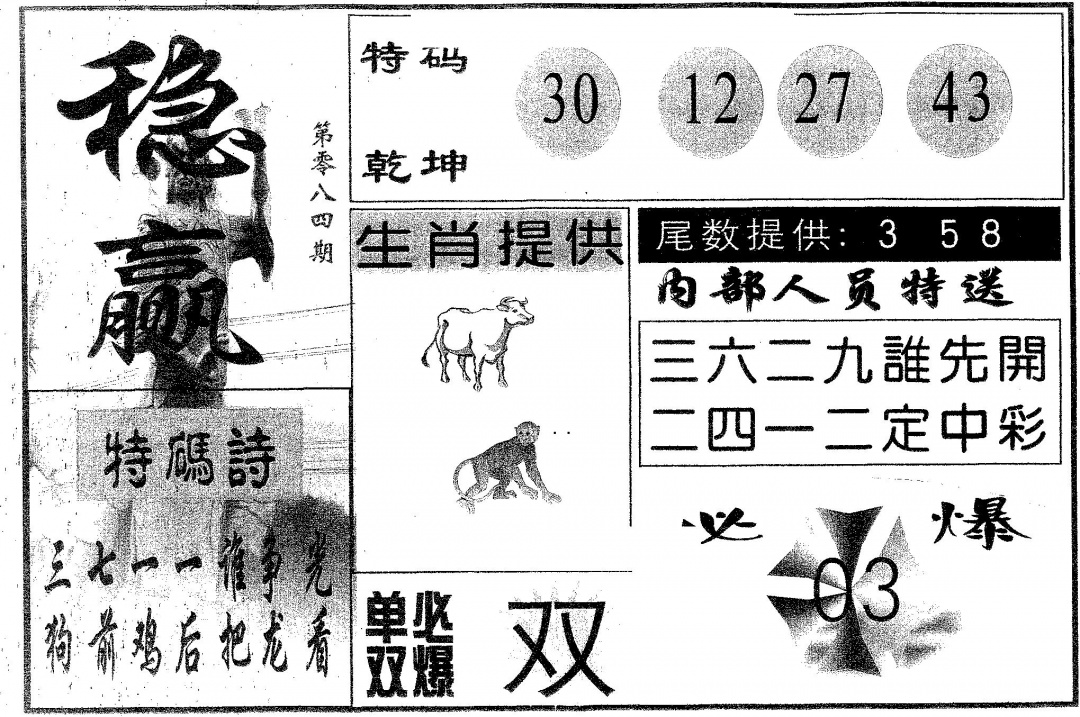 稳赢
第零八四期
特码
乾坤
30 12 27 43
生肖提供
尾数提供: 3 58
内部人员特送
三六二九誰先開
二四一二定中彩
特碼詩
三七一一谁争光
狗前鸡后把龙看
必爆
03
单双
必爆
双